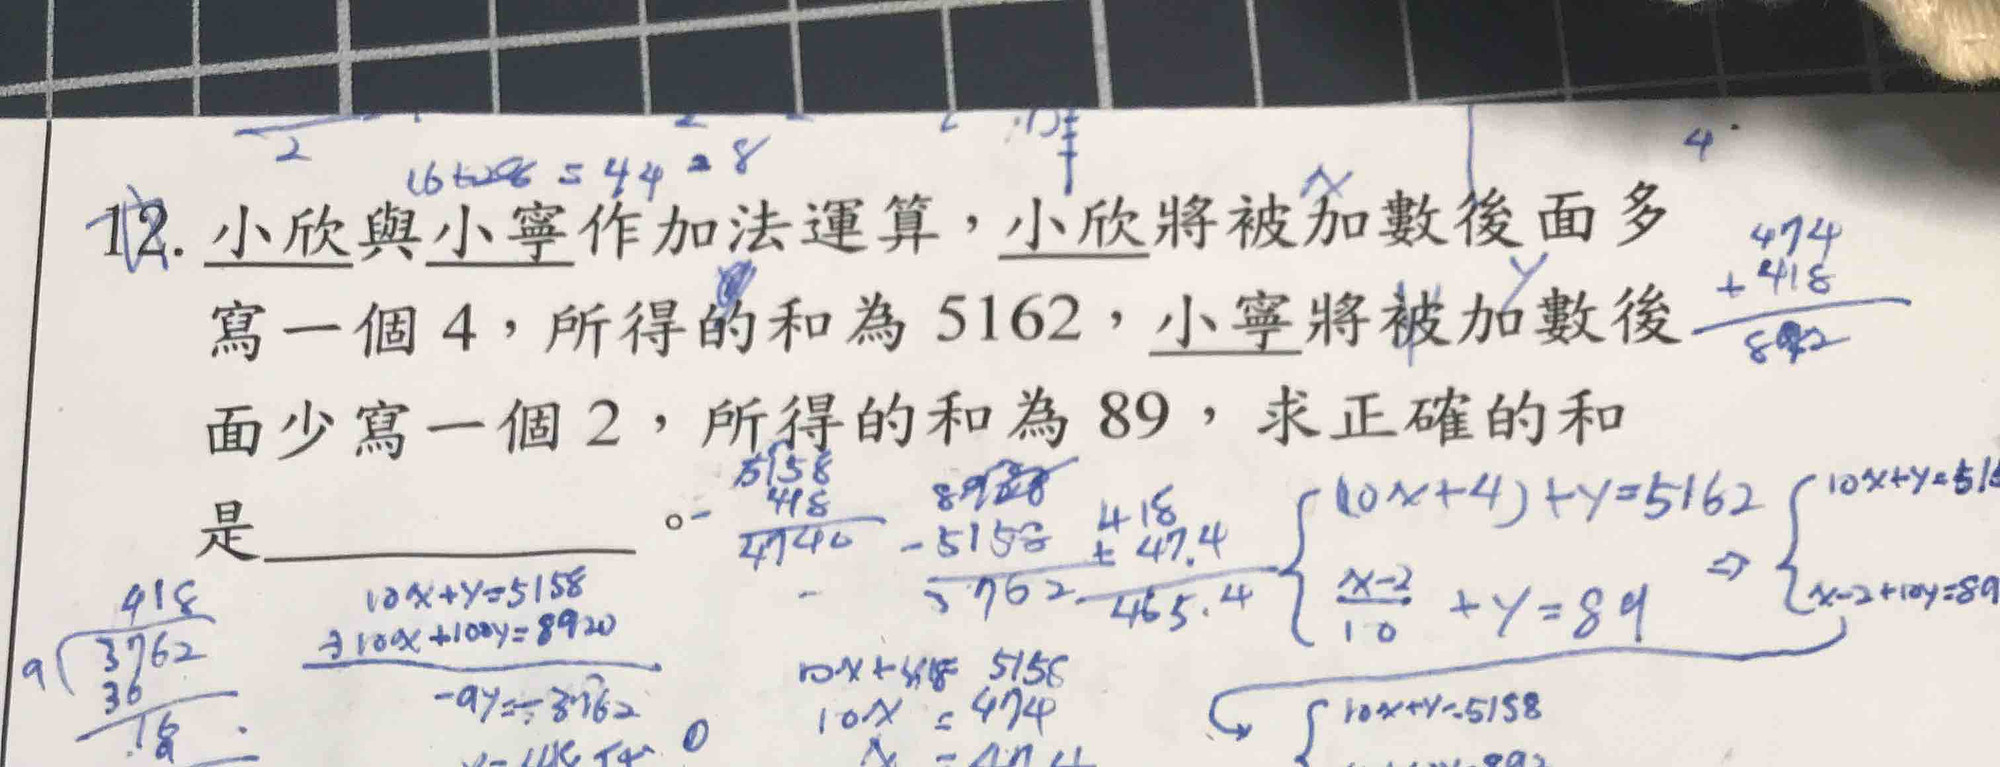 16+28 = 44 = 8
4
12. 小欣與小寧作加法運算，小欣將被加數後面多
x
寫一個 4，所得的和為 5162，小寧將被加數後
y
面少寫一個 2，所得的和為 89，求正確的和
是 。
474
+ 418
892
5158
418
4740
- 5158
3762
418
+ 47.4
465.4
(10x+4)+y=5162
x-2
10
+y=89
⇒
10x+y=515
x-2+10y=89
418
9 3762
36
10x+y=5158
10x+100y=8920
-9y=-3762
10x+418= 5158
10x = 474
10x+y=5158